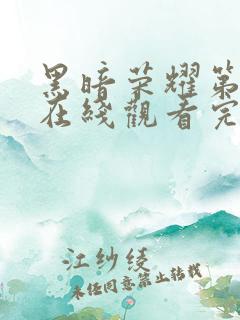 黑暗荣耀第
在綫觀看完
江纱绫
未经同意禁止转载